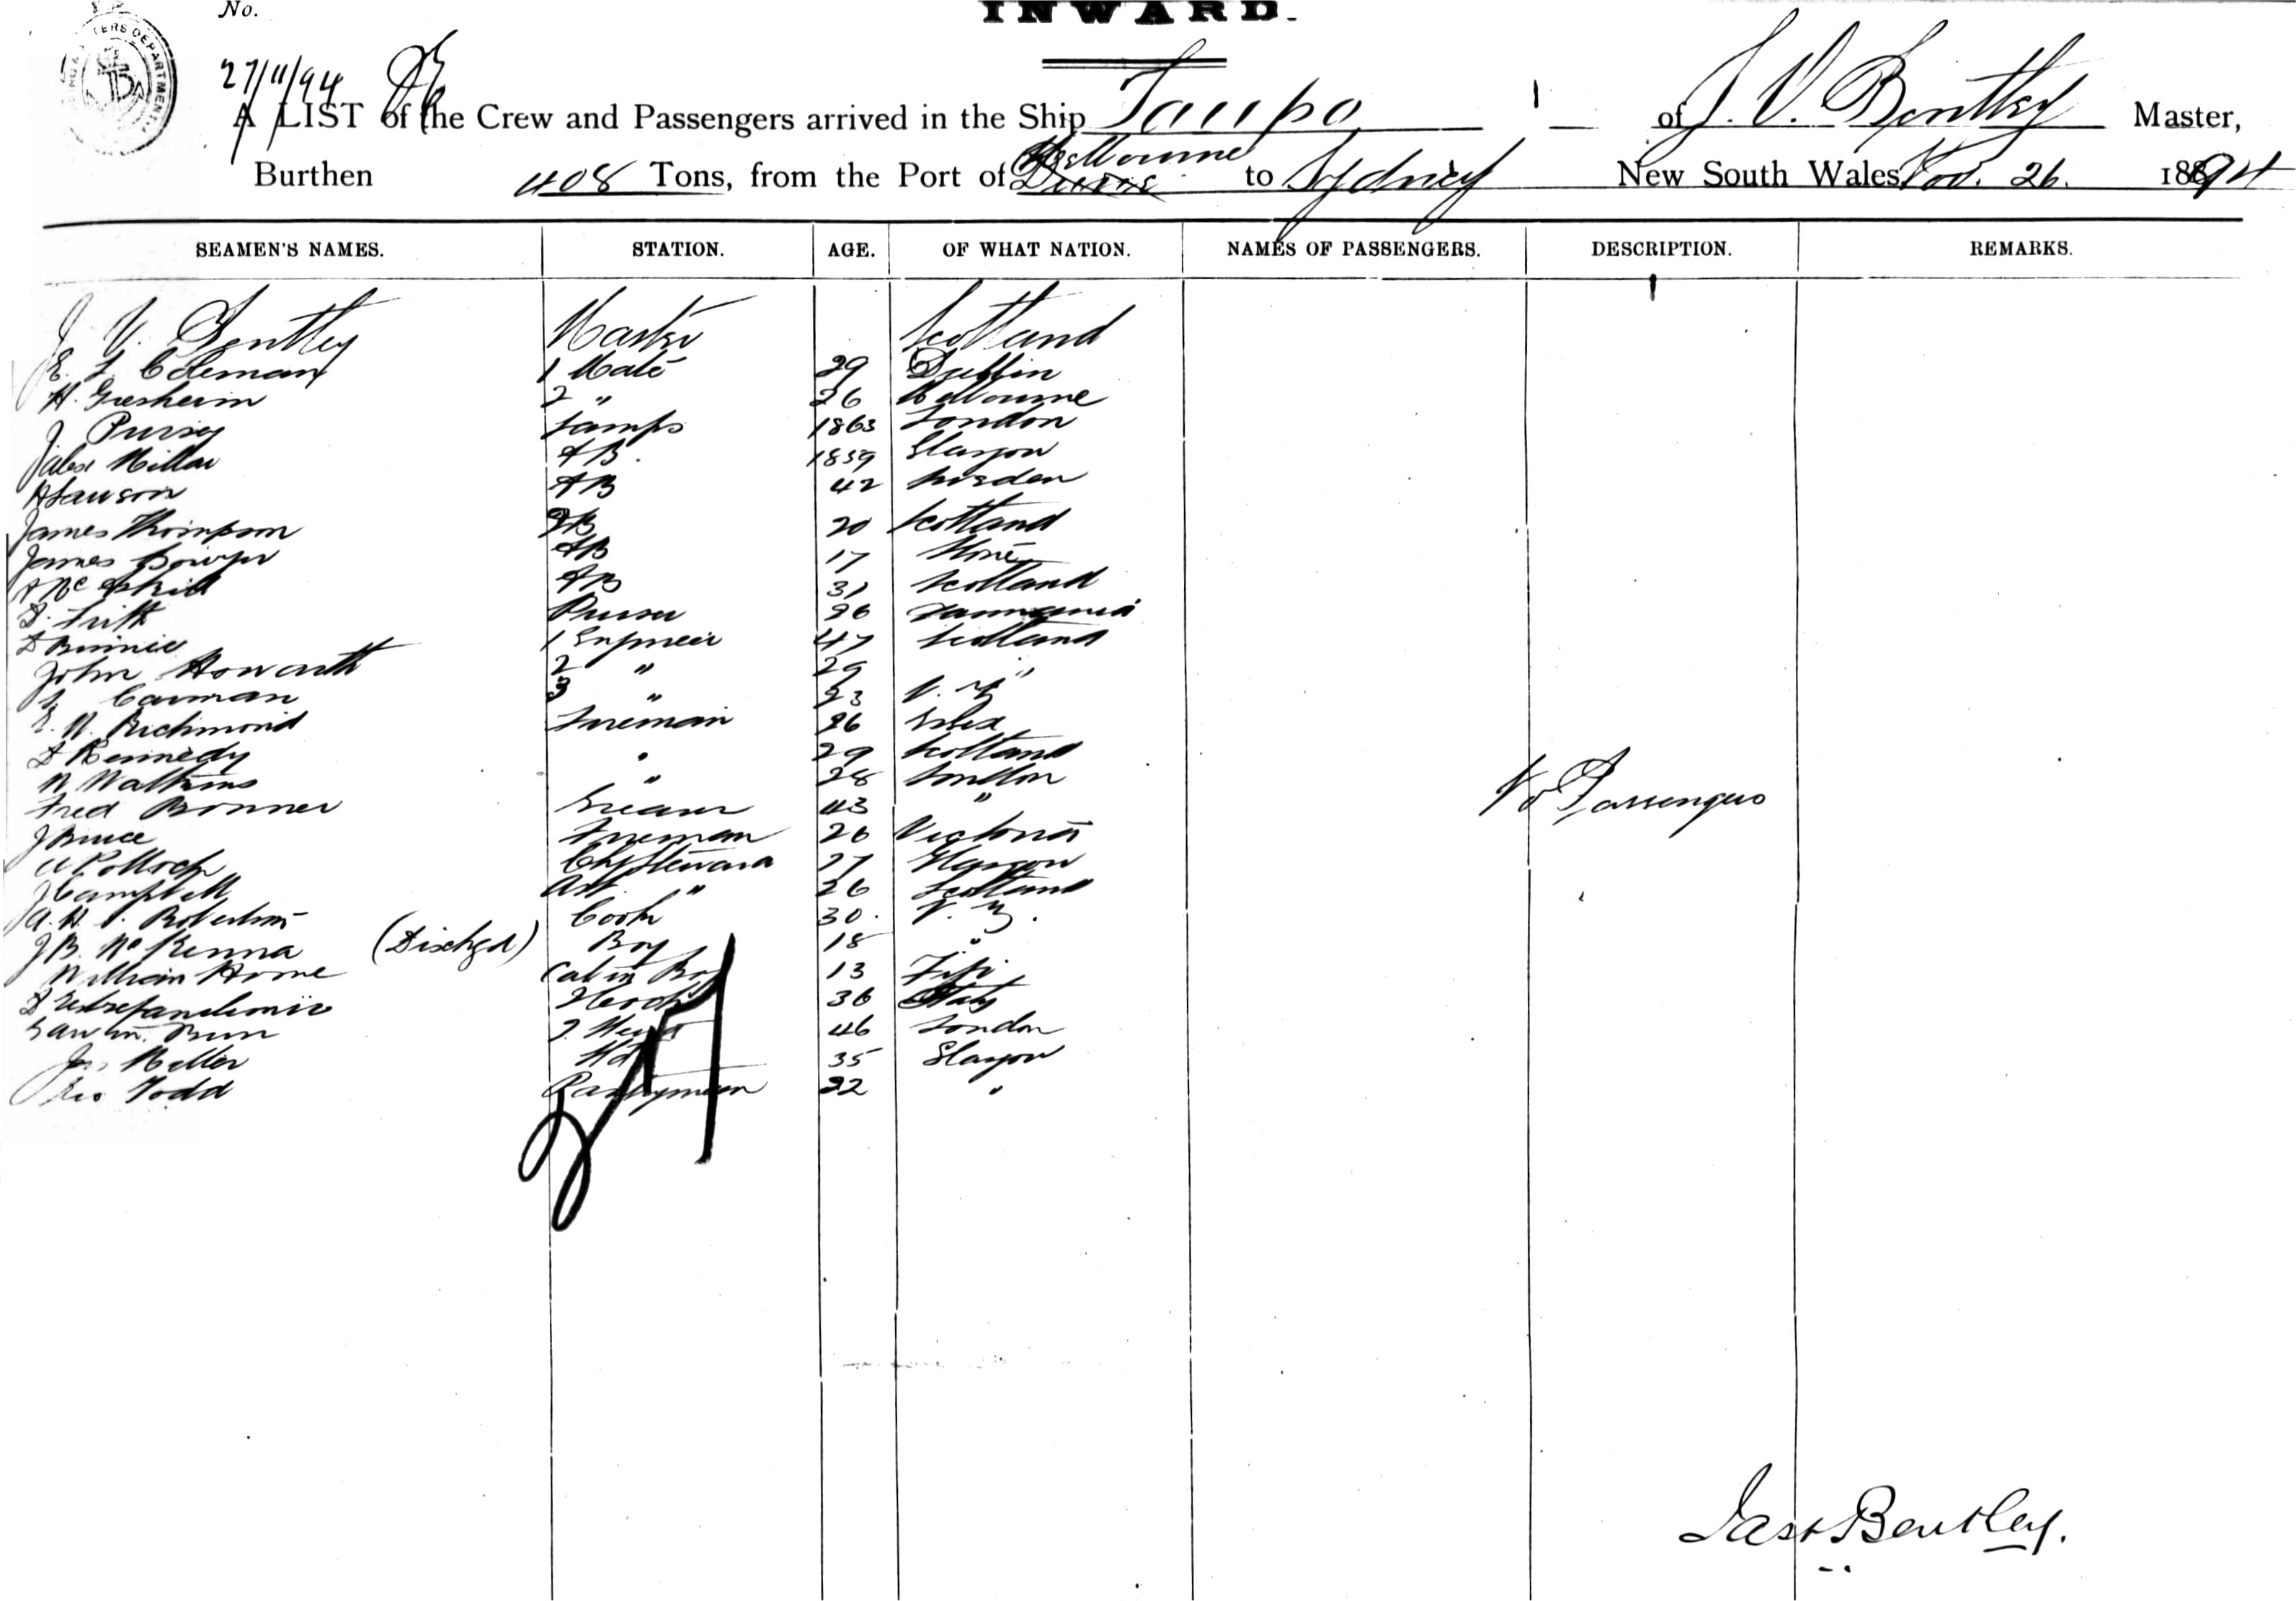 No.
INWARD.
27/11/94
A LIST of the Crew and Passengers arrived in the Ship Taupo of J. V. Bentley Master,
Melbourne
Burthen 408 Tons, from the Port of to Sydney New South Wales Nov. 26. 1894
SEAMEN'S NAMES. STATION. AGE. OF WHAT NATION. NAMES OF PASSENGERS. DESCRIPTION. REMARKS.
J. V. Bentley Master Scotland
E. L. Coleman 1 Mate 29 Dublin
H. Gresheim 2 " 26 Melbourne
J Pursey Lamps 1863 London
Millar AB. 1859 Glasgow
A Lawson AB 42 Sweden
James Thompson AB 20 Scotland
James Bowyer AB 17
A McAskill AB 31 Scotland
D. Frith Purser 26 Tasmania
D Binnie 1 Engineer 47 Scotland
John Howarth 2 " 29 "
Carman 3 " 23 N. Z
E. W. Richmond Fireman 26 Essex
D Kennedy " 29 Scotland
W Watkins " 28 London
Fred Bonner Greaser 43 "
No Passengers
J Bruce Fireman 26 Victoria
W Pollock Chf Steward 27 Glasgow
J Campbell Asst. " 26 Scotland
A. H. Robertson Cook 30. N. Z.
J B. McKenna (Dischgd) Boy 18 "
William Horne Cabin Boy 13 Fiji
36 Italy
46 London
Jas Miller 35 Glasgow
Geo Todd Pantryman 22 "
Jas Bentley.